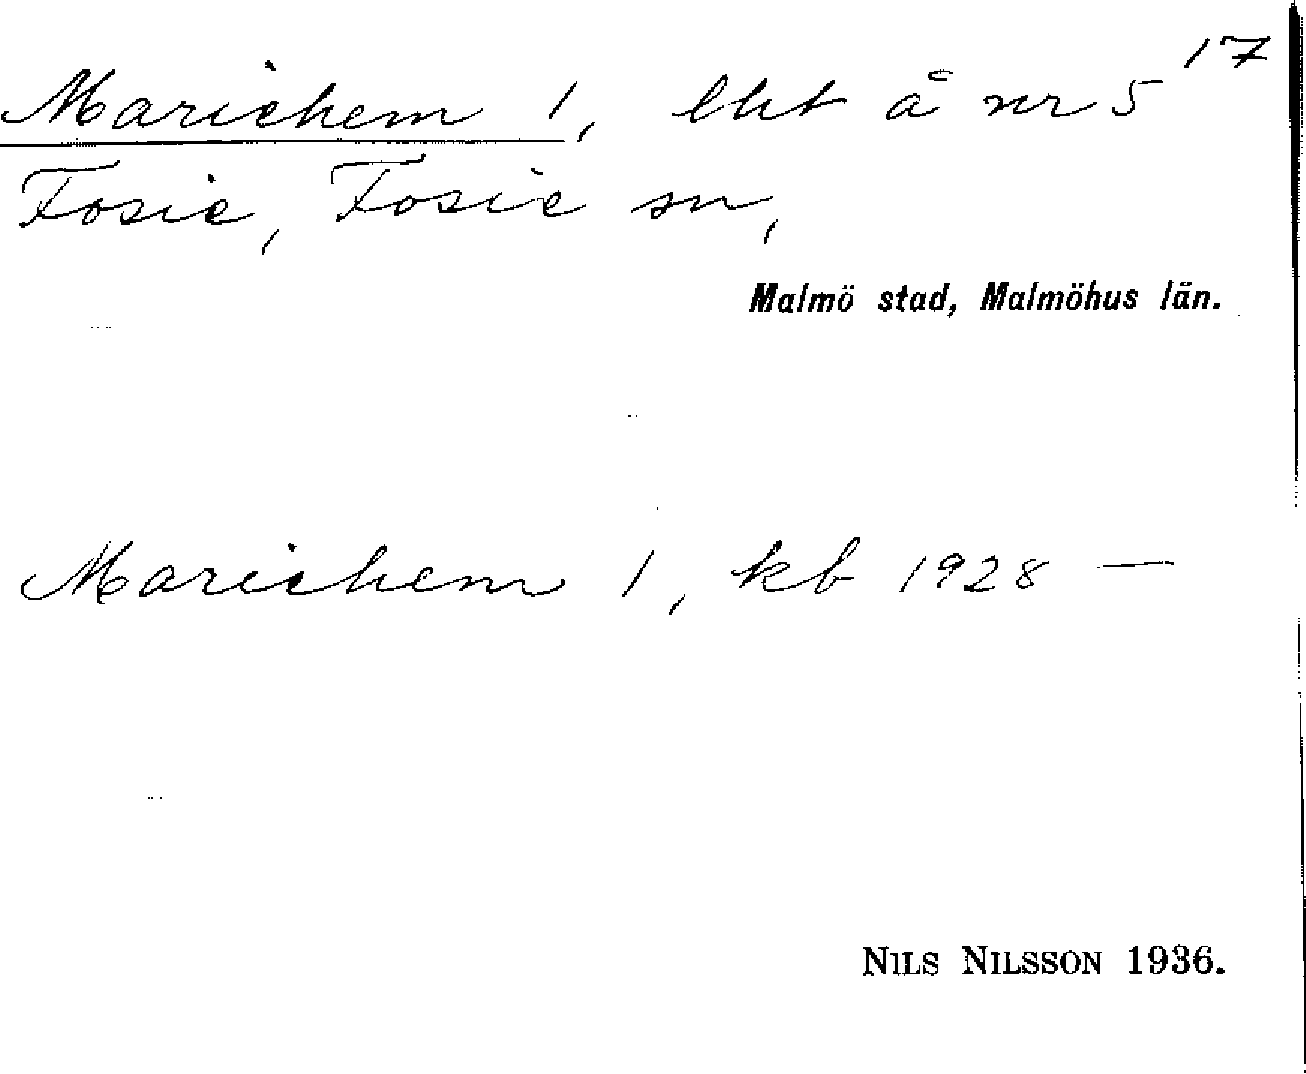 Mariehem 1, lht å nr 5¹⁷
Fosie, Fosie sn,
Malmö stad, Malmöhus län.
Mariehem 1, kb 1928 —
NILS NILSSON 1936.